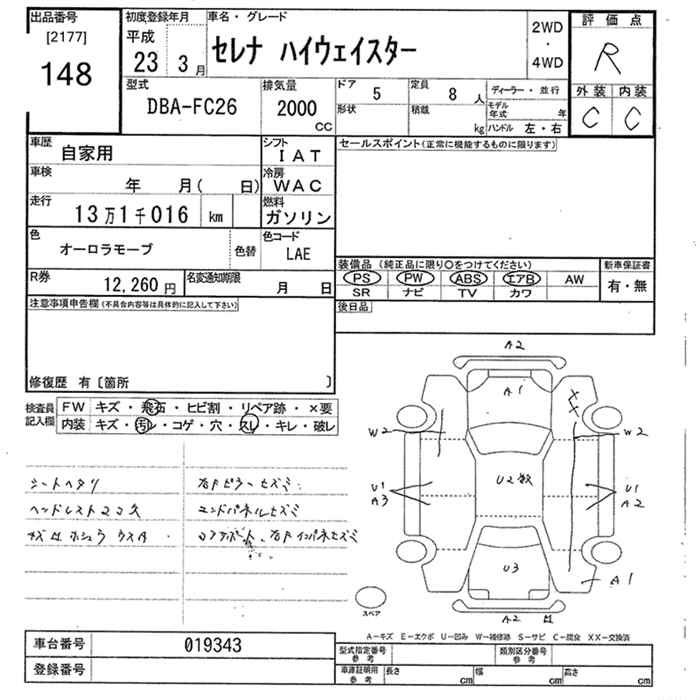 出品番号
[2177]
148
初度登録年月
平成
23 3 月
車名・グレード
セレナ ハイウェイスター
2WD
・
4WD
評価点
R
外装 内装
C C
型式
DBA-FC26
排気量
2000
CC
ドア
5
定員
8 人
形状
積載
kg
ディーラー・並行
モデル年式 年
ハンドル 左・右
車歴
自家用
シフト
IAT
車検
年 月( 日)
冷房
WAC
走行
13万1千016 km
燃料
ガソリン
色
オーロラモーブ
色替
色コード
LAE
R券
12,260 円
名変通知期限
月 日
セールスポイント(正常に機能するものに限ります)
装備品 (純正品に限り〇をつけてください)
PS PW ABS エアB AW
SR ナビ TV カワ
新車保証書
有・無
後日品
注意事項申告欄(不具合内容等は具体的に記入して下さい)
修復歴 有〔箇所 〕
検査員記入欄
FW キズ・飛石・ヒビ割・リペア跡・×要
内装 キズ・汚レ・コゲ・穴・スレ・キレ・破レ
シートヘタリ
ヘッドレスト
右Fピラーヒズミ
エンドパネルヒズミ
コアサポート、右Fインパネヒズミ
A2
A1
X
X
W2
W2
U2数
U1
A3
U1
A2
U3
A1
A2
スペア
A−キズ E−エクボ U−凹み W−補修跡 S−サビ C−腐食 XX−交換済
車台番号
019343
登録番号
型式指定番号
参考
類別区分番号
参考
車庫証明用
参考
長さ cm 幅 cm 高さ cm